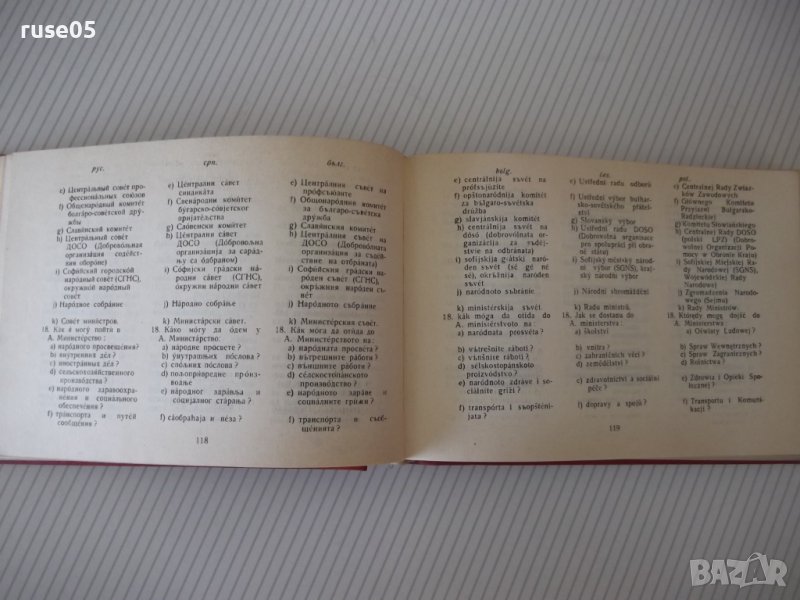 ruse05
рус.
е) Центра́льный сове́т про-
фессиона́льных сою́зов
f) Общенаро́дный комите́т
болга́ро-сове́тской дру́-
жбы
g) Славя́нский комите́т
h) Центра́льный сове́т
ДОСО (Доброво́льная
организа́ция соде́йст-
вия оборо́не)
i) Софи́йский городско́й
наро́дный сове́т (СГНС),
окружно́й наро́дный
сове́т
j) Наро́дное собра́ние
k) Сове́т мини́стров.
18. Как я могу́ пойти́ в
А. Министе́рство :
a) наро́дного просвеще́ния?
b) вну́тренних дел ?
c) иностра́нных дел ?
d) сельскохозя́йственного
произво́дства ?
e) наро́дного здравоохра-
не́ния и социа́льного
обеспе́чения ?
f) тра́нспорта и путе́й
сообще́ния ?
срп.
e) Централни савет
синдиката
f) Свенародни комитет
бугарско-совјетског
пријатељства
g) Словенски комитет
h) Централни савет
ДОСО (Добровољна
организација за сарад-
њу са одбраном)
i) Софијски градски на-
родни савет (СГНС),
окружни народни савет
j) Народно собрање
k) Министарски савет.
18. Како могу да одем у
А. Министарство :
a) народне просвете ?
b) унутрашњих послова ?
c) спољних послова ?
d) пољопривредне произ-
водње
e) народног здравља и
социјалног старања ?
f) саобраћаја и веза ?
бълг.
e) Централния съвет на
профсъюзите
f) Общонародния комитет
за българо-съветска
дружба
g) Славянския комитет
h) Централния съвет на
ДОСО (Доброволна
организация за съдей-
ствие на отбраната)
i) Софийския градски на-
роден съвет (СГНС),
окръжния народен съ-
вет
j) Народното събрание
k) Министерския съвет.
18. Как мога да отида до
А. Министерството на:
a) народната просвета ?
b) вътрешните работи ?
c) външните работи ?
d) селскостопанското
производство ?
e) народното здраве и
социалните грижи ?
f) транспорта и съоб-
щенията ?
118
bolg.
e) centrálnija səvét na
prófsəjúzite
f) opštonaródnija komitét
za bəlgaro-səvétska
drúžba
g) slavjánskija komitét
h) centrálnija səvét na
dósó (dobrovólna or-
ganizácija za sədéj-
stvie na otbránata)
i) sofíjskija grátski naró-
den səvét (sé gé né
sé), okrə́žnija naróden
səvét
j) naródnoto səbránie
k) ministérskija səvét
18. kák móga da otída do
A. ministérstvoto na
a) naródnata prosvéta ?
b) və́trešnite ráboti ?
c) və́nšnite ráboti ?
d) sélskostopánskoto
proizvódstvo ?
e) naródnoto zdráve i so-
ciálnite gríži ?
f) tránsporta i səopšténi-
jata ?
čes.
e) Ústřední radu odborů
f) Všelidový výbor bulhar-
sko-sovětského přátel-
ství
g) Slovanský výbor
h) Ústřední radu DOSO
(Dobrovolná organisace
pro spolupráci při obra-
ně státu)
i) Sofijský městský národ-
ní výbor (SGNS), kraj-
ský národní výbor
j) Národní shromáždění
k) Radu ministrů.
18. Jak se dostanu do
A. ministerstva :
a) školství
b) vnitra ?
c) zahraničních věcí ?
d) zemědělství ?
e) zdravotnictví a sociální
péče ?
f) dopravy a spojů ?
pol.
e) Centralnej Rady Związ-
ków Zawodowych
f) Głównego Komitetu
Przyjaźni Bułgarsko-
Radzieckiej
g) Komitetu Słowiańskiego
h) Centralnej Rady DOSO
(polski LPŻ) (Dobro-
wolnej Organizacji Po-
mocy w Obronie Kraju)
i) Sofijskiej Miejskiej Ra-
dy Narodowej (SGNS),
Wojewódzkiej Rady
Narodowej
j) Zgromadzenia Narodo-
wego (Sejmu)
k) Rady Ministrów.
18. Którędy mogę dojść do
A. Ministerstwa
a) Oświaty Ludowej ?
b) Spraw Wewnętrznych ?
c) Spraw Zagranicznych ?
d) Rolnictwa ?
e) Zdrowia i Opieki Spo-
łecznej ?
f) Transportu i Komuni-
kacji ?
119
BAZAR